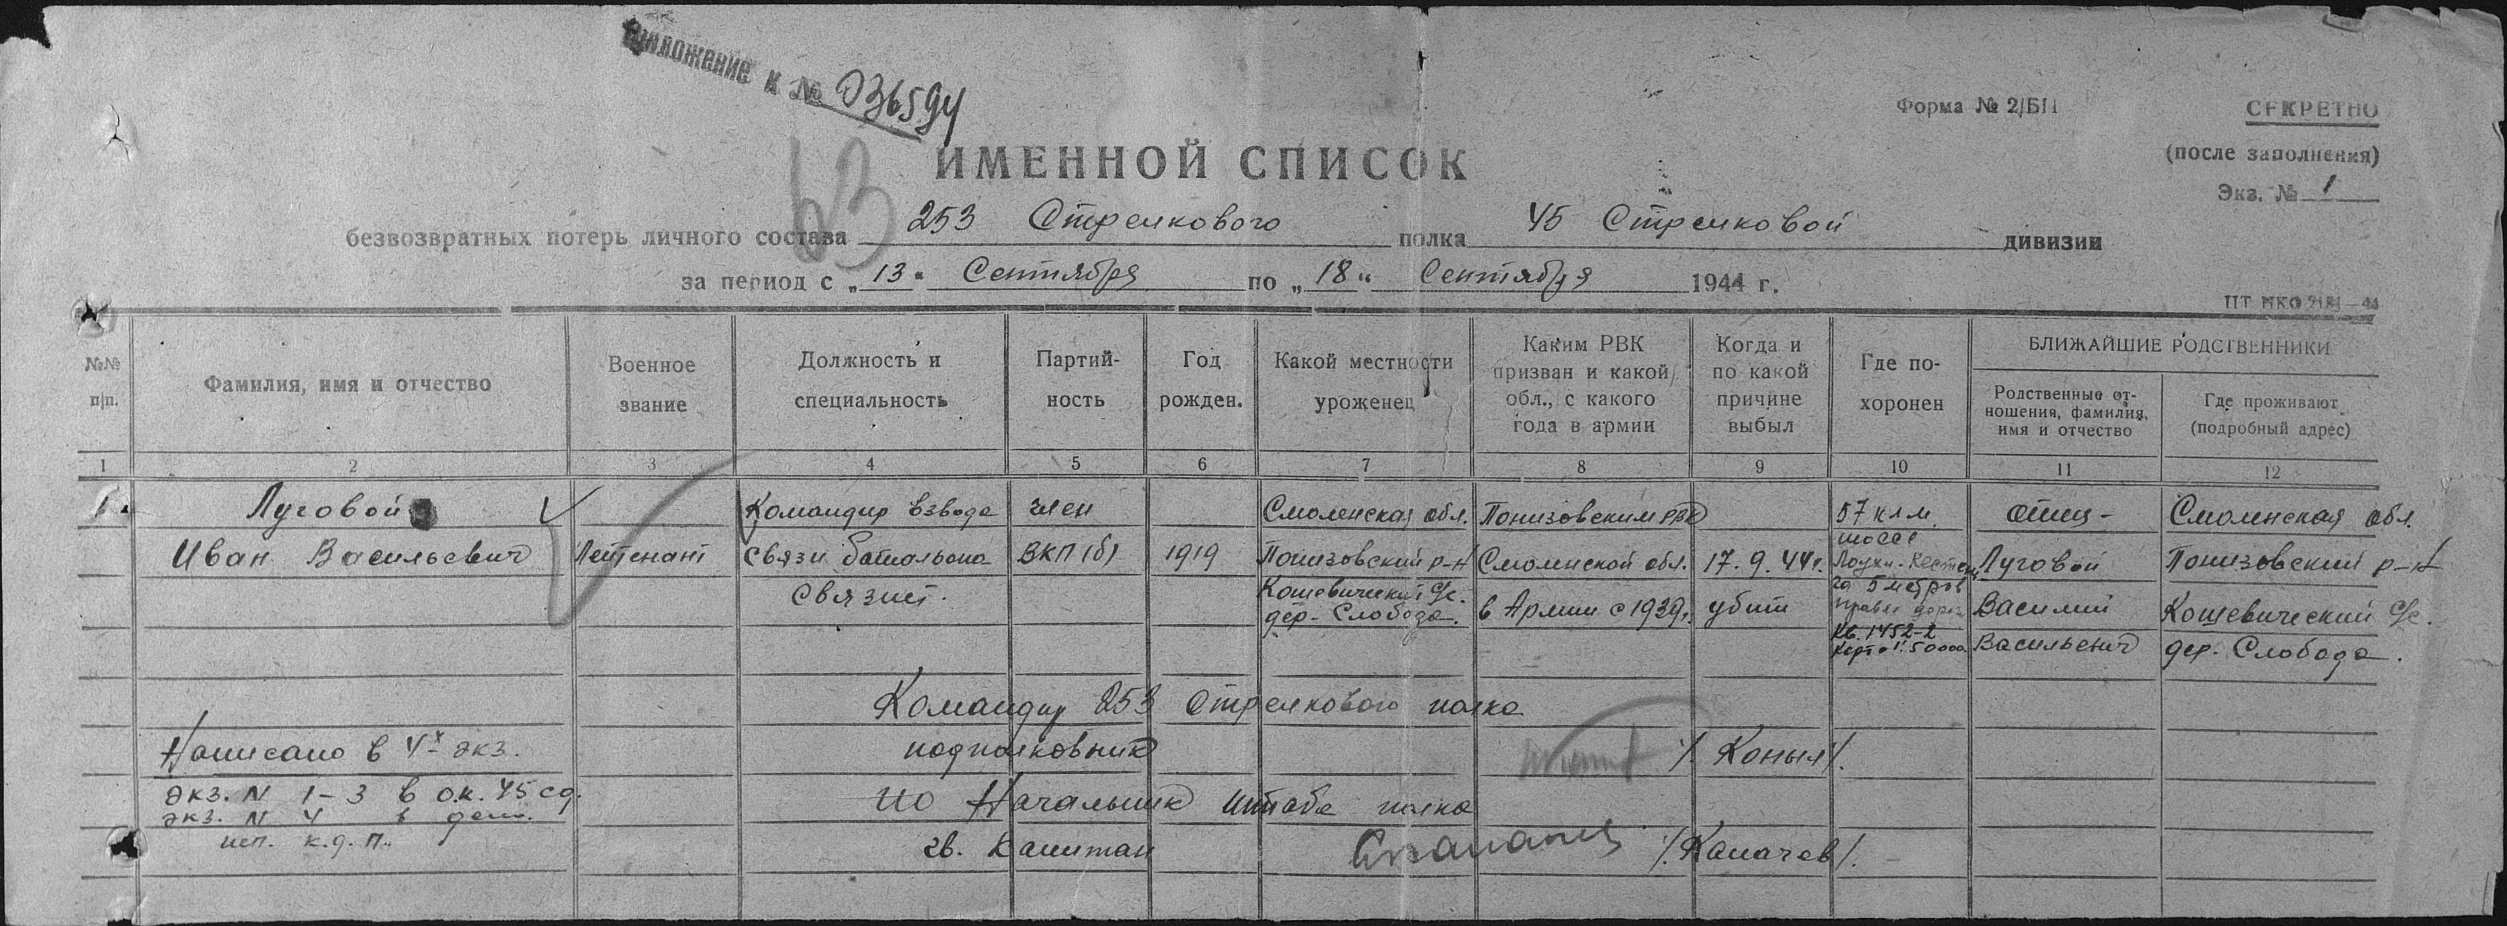 Приложение к № 036594
Форма № 2/БП
СЕКРЕТНО
(после заполнения)
Экз. № 1
63
ИМЕННОЙ СПИСОК
безвозвратных потерь личного состава 253 Стрелкового полка 45 Стрелковой дивизии
за период с „13“ Сентября по „18“ Сентября 1944 г.
№№ п/п.
Фамилия, имя и отчество
Военное звание
Должность и специальность
Партий-
ность
Год рожден.
Какой местности уроженец
Каким РВК
призван и какой
обл., с какого
года в армии
Когда и
по какой
причине
выбыл
Где по-
хоронен
БЛИЖАЙШИЕ РОДСТВЕННИКИ
Родственные от-
ношения, фамилия,
имя и отчество
Где проживают
(подробный адрес)
1 2 3 4 5 6 7 8 9 10 11 12
1 Луговой Командир взвода член Смоленская обл. Понизовским РВК 57 клм. отец - Смоленская обл.
Иван Васильевич Лейтенант связи батальона ВКП(б) 1919 Понизовский р-н Смоленской обл. 17.9.44г. шоссе Лоухи-Кестеньга Луговой Понизовский р-н
связист. Кошевический с/с. дер. Слобода. в Армии с 1939г. убит 5 метров правее дороги Василий Кошевический с/с.
Кв. 1452-2 Карта 1:50000 Васильевич дер. Слобода.
Командир 253 стрелкового полка
Написано в 4-х экз. подполковник /Коныл/.
экз. N 1-3 в о.к. 45 сд.
ИО Начальник штаба полка
экз. N 4 в дело.
исп. к.д.п.
гв. Капитан /Капачев/.